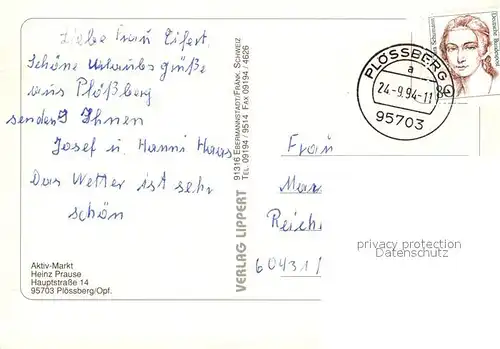 Liebe Frau Eifert.
Schöne Urlaubsgrüße
aus Plößberg
senden Ihnen
Josef u. Hanni Haas
Das Wetter ist sehr
schön
Aktiv-Markt
Heinz Prause
Hauptstraße 14
95703 Plössberg/Opf.
VERLAG LIPPERT
91316 EBERMANNSTADT/FRÄNK. SCHWEIZ
TEL. 09194 / 9514 FAX 09194 / 4626
PLÖSSBERG
a
24.-9.94-11
95703
80
Deutsche Bundespost
Frau
Reich
60431/
privacy protection
Datenschutz